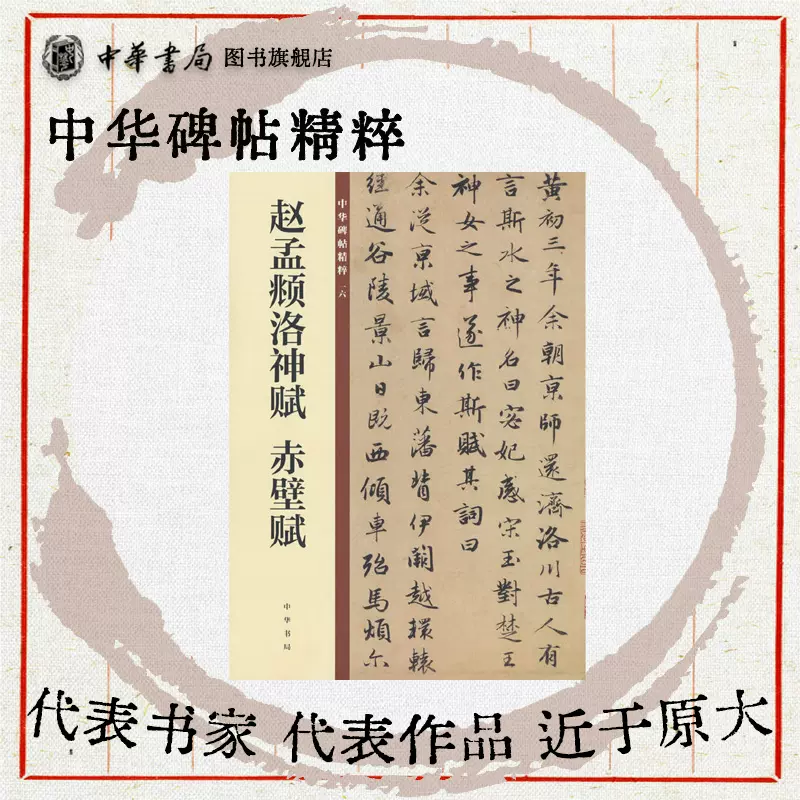 中華書局 图书旗舰店
中华碑帖精粹
赵孟頫洛神赋 赤壁赋
中华书局
中华碑帖精粹 一六
黄初三年余朝京師還濟洛川古人有
言斯水之神名曰宓妃感宋玉對楚王
神女之事遂作斯賦其詞曰
余從京域言歸東藩背伊闕越轘轅
經通谷陵景山日既西傾車殆馬煩尔
代表书家 代表作品 近于原大